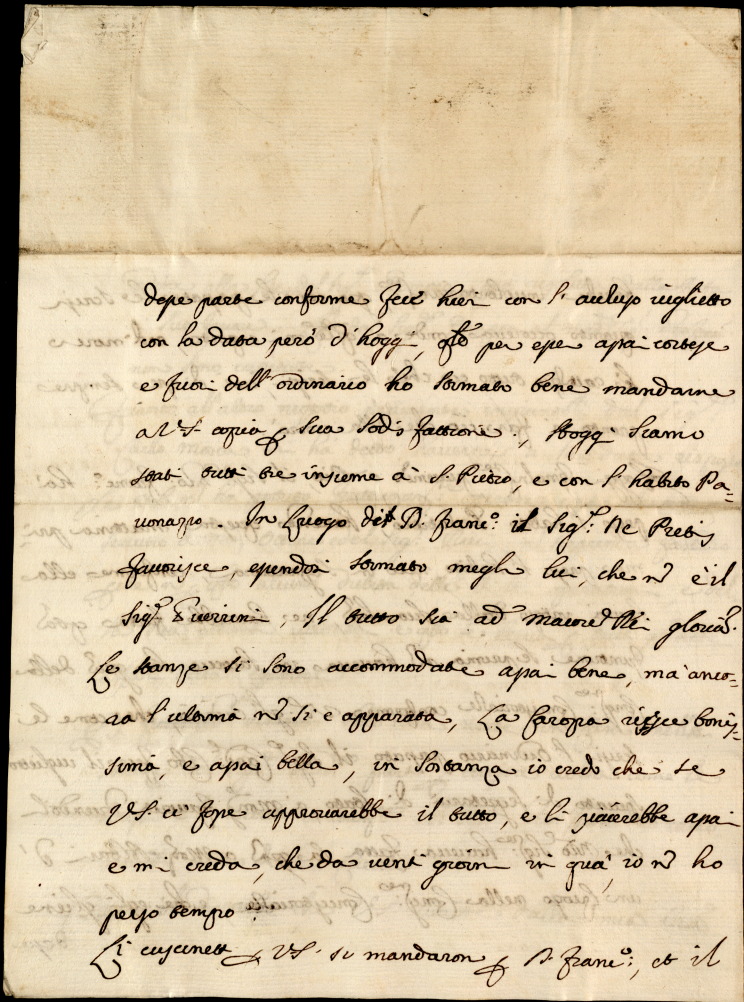 desse parte conforme fece hieri con l'accluso viglietto
con la data però d'hoggi, q.to per esser assai cortese
e fuori dell'ordinario ho stimato bene mandarne
a V.S. copia p sua sodisfattione., Hoggi siamo
stati tutti tre insieme à S. Pietro, e con l'habito Pa=
uonazzo. In luogo del D. Franc.o il Sig.r De Pretis
fauorisce, essendosi stimato meglio lui, che n è il
Sig.r Guerrini, Il tutto sia ad maiorē Dei gloriā.
Le stanze si sono accommodate assai bene, ma anco=
ra l'ultima n si è apparata, La Carozza riesce bonis=
sima, e assai bella, in sostanza io credo che se
V.S. ci fosse approuarebbe il tutto, e li piacerebbe assai
e mi creda, che da uenti giorni in quà, io n ho
perso tempo
Li cuscinetti p V.S. si mandaron p D. Franc.o, et il